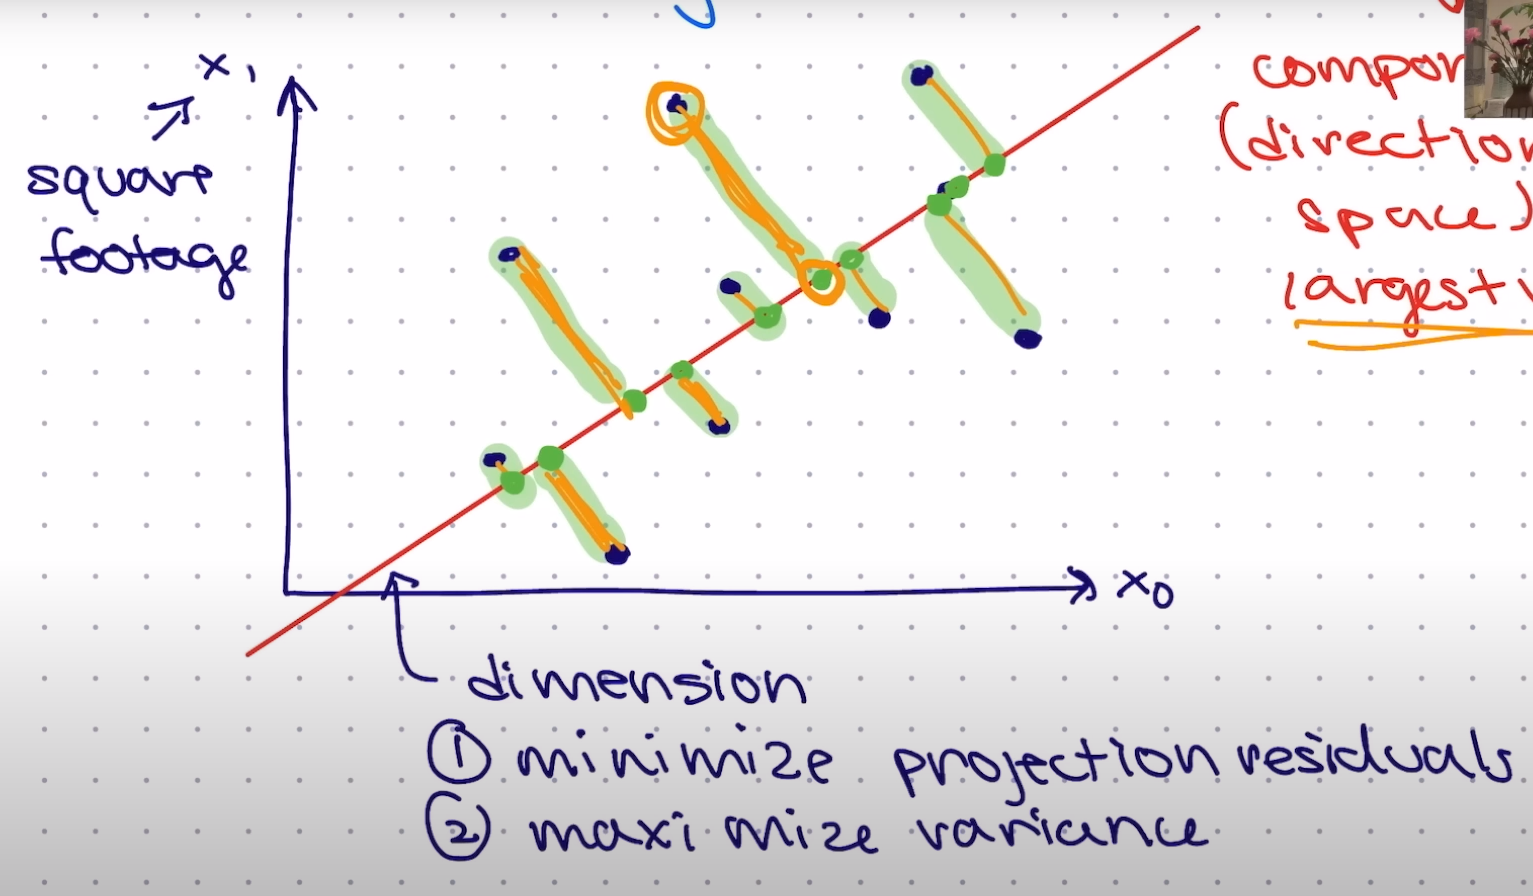 x₁
square
footage
(direction
space)
largest
x₀
dimension
① minimize projection residuals
② maximize variance